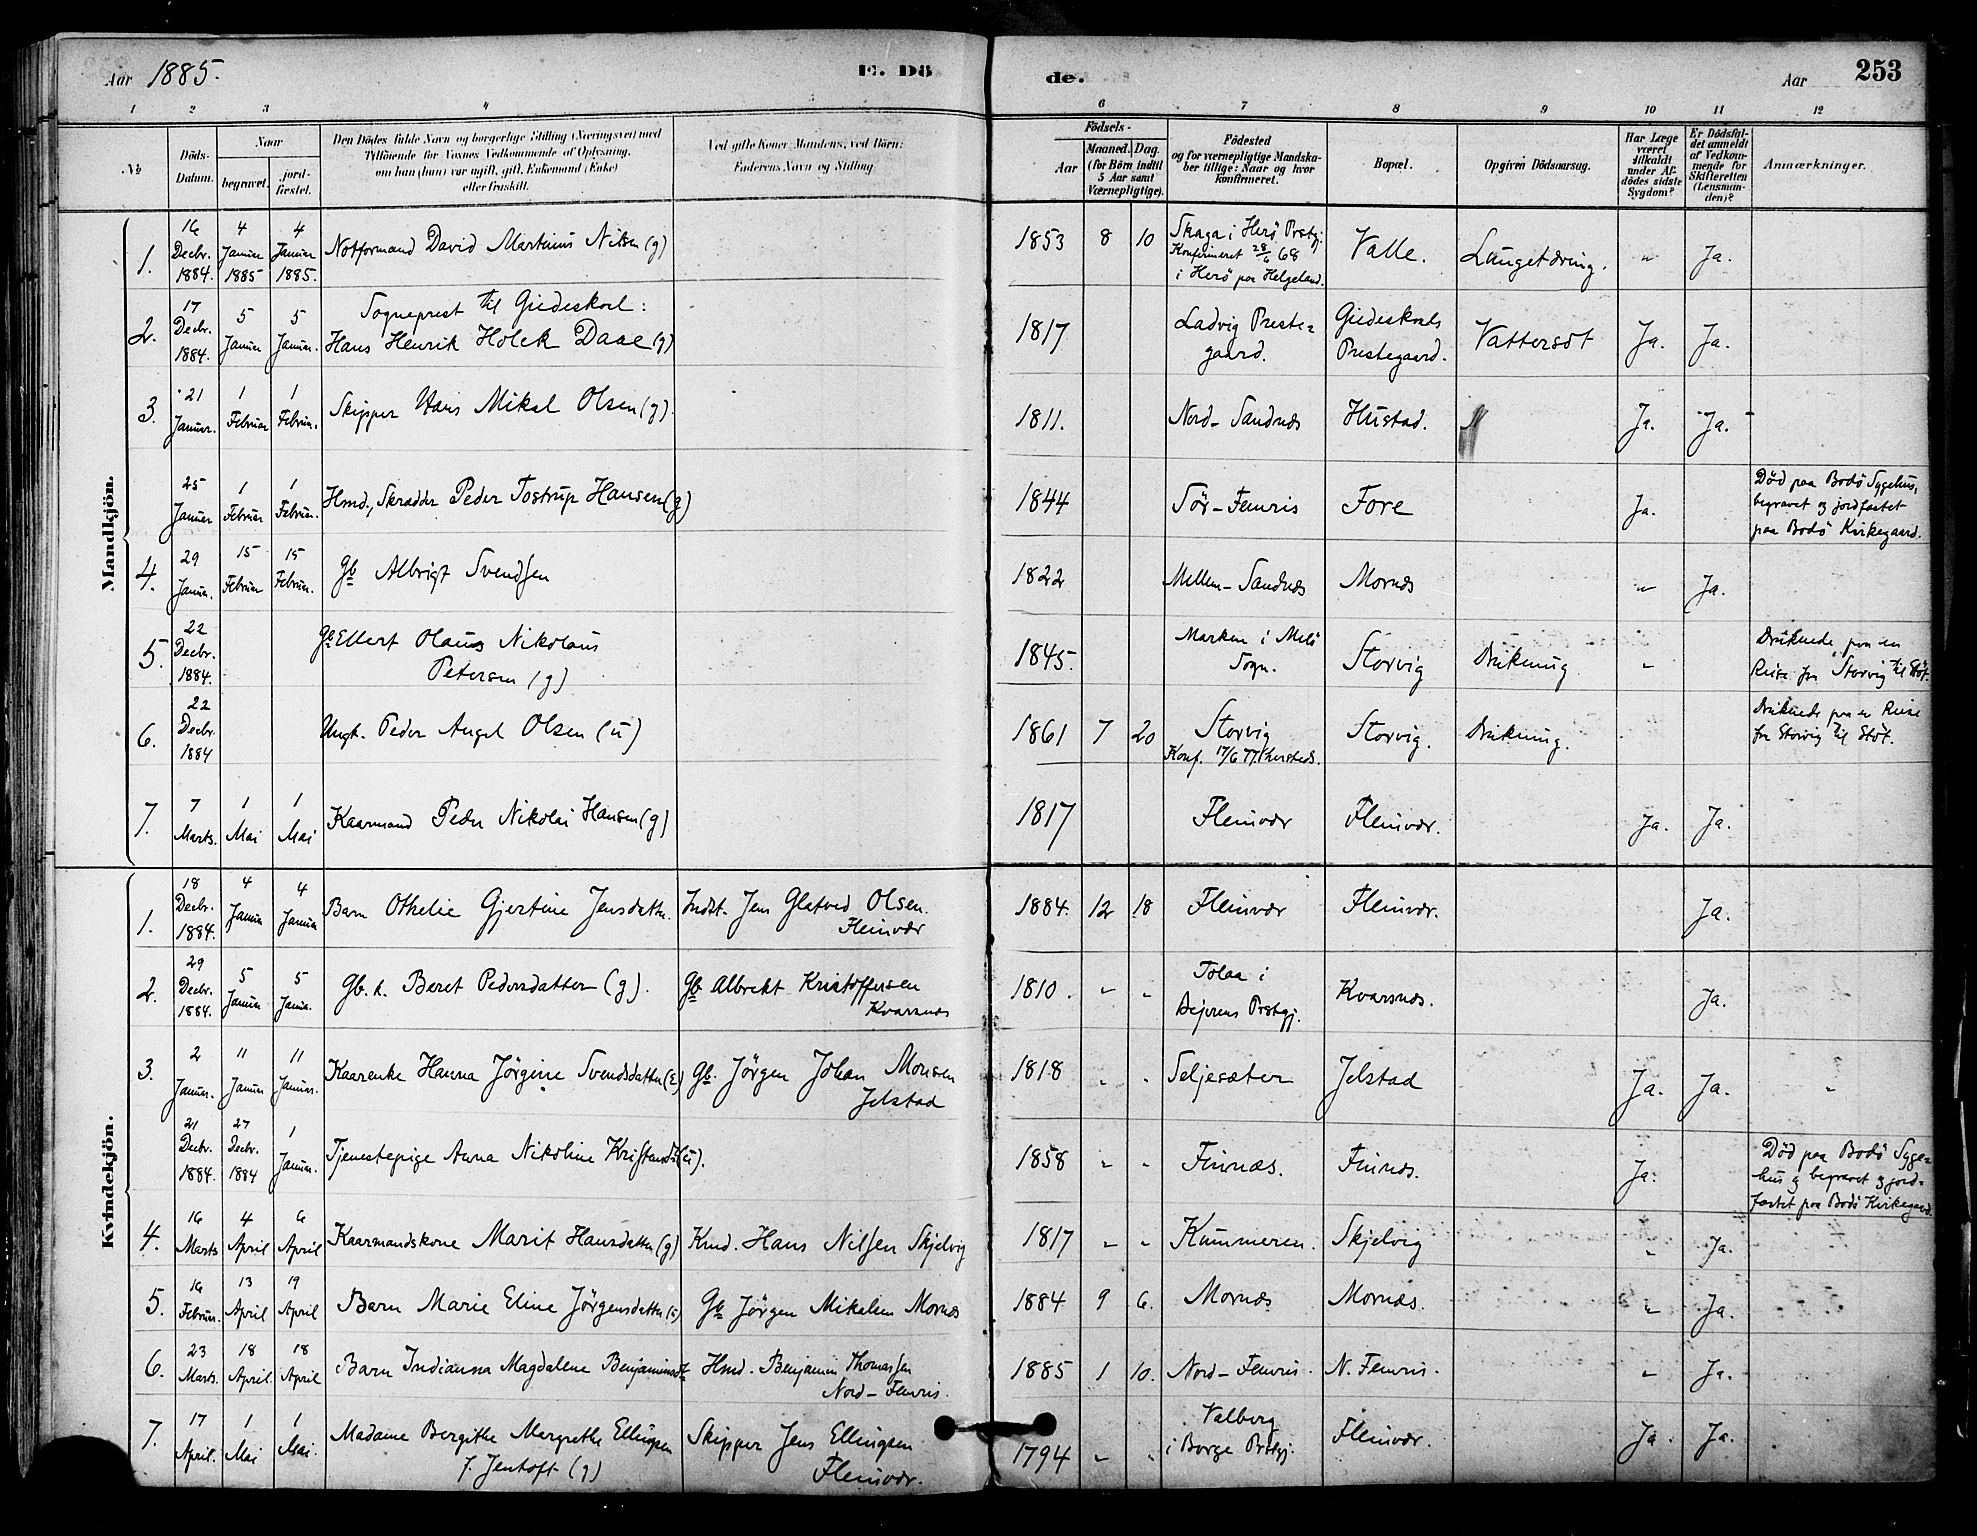 Aar 1885.
E. Dö
de.
Aar
253
1 2 3 4
6 7 8 9 10 11 12
No
Döds-Datum.
Naar
begravet.
jord-fæstet.
Den Dödes fulde Navn og borgerlige Stilling (Næringsvei) med
Tilföiende for Voxnes Vedkommende af Oplysning,
om han (hun) var ugift, gift, Enkemand (Enke)
eller fraskilt.
Ved gifte Koner Mandens, ved Börn:
Faderens Navn og Stilling.
Födsels-
Aar
Maaned. Dag.
(for Börn indtil
5 Aar samt
Værnepligtige).
Födested
og for værnepligtige Mandska-
ber tillige: Naar og hvor
konfirmeret.
Bopæl.
Opgiven Dödsaarsag.
Har Læge
været
tilkaldt
under Af-
dödes sidste
Sygdom?
Er Dödsfal-
det anmeldt
af Vedkom-
mende for
Skifteretten
(Lensman-
den)?
Anmærkninger.
Mandkjön.
1. 16 Decbr. 1884. 4 Januar 1885 4 Januar 1885. Notformand David Martinus Nilsen (g) 1853 8 10 Skaga i Herö Prstgj. Konfirmeret 28/6 68 i Herö paa Helgeland. Valle. Lungetæring. " Ja.
2. 17 Decbr. 1884. 5 Januar 5 Januar. Sogneprest til Gildeskaal: Hans Henrik Holck Daae (g) 1817 Ladvig Prestegaard. Gildeskaals Prestegaard. Vattersot Ja. Ja.
3. 21 Januar. 1 Februar 1 Februar. Skipper Hans Mikal Olsen (g). 1811. Nord-Sandnes Hustad. Ja. Ja.
25 Januar 1 Februar 1 Februar. Hmd., Skrædder Peder Tostrup Hansen (g) 1844 Sör-Femris Fore Ja. Död paa Bodö Sygehus, begravet og jordfæstet paa Bodö Kirkegaard.
4. 29 Januar. 15 Februar 15 Februar. Gb Albrigt Svendsen 1822 Mellem-Sandnes Mornes " Ja.
5. 22 Decbr. 1884. Gb Ellert Olaus Nikolaus Petersen (g) 1845. Marken i Melö Sogn. Storvig Drukning " Druknede paa en Reise fra Storvig til Stöt.
6. 22 Decbr. 1884 Ungk. Peder Angel Olsen (u) 1861 7 20 Storvig Konf. 17/6 77 Storvig. Drukning. Druknede paa en Reise fra Storvig til Stöt.
7. 7 Marts. 1 Mai 1 Mai Kaarmand Peder Nikolai Hansen (g) 1817 Fleinvær Fleinvær. Ja. Ja.
Kvindekjön.
1. 18 Decbr. 1884. 4 Januar 4 Januar Barn Othelie Gjertine Jensdatter. Indst. Jens Glatved Olsen. Fleinvær 1884. 12 18 Fleinvær Fleinvær. Ja.
2. 29 Decbr. 1884. 5 Januar 5 Januar. Gb. k. Beret Pedersdatter (g). Gb Albrekt Kristoffersen Kvarsnes 1810. " " Tolaa i Bejerens Prstgj. Kvarsnes. Ja.
3. 2 Januar. 11 Januar 11 Januar. Kaarenke Hanna Jörgine Svendsdatter (E) Gb. Jörgen Johan Monsen Jelstad 1818 " " Seljesæter Jelstad Ja. Ja. "
21 Decbr. 1884. 27 Decbr. 1884 1 Januar. Tjenestepige Anna Nikoline Kristensdtr (u). 1858 " " Finnæs. Finnæs. Ja. Död paa Bodö Sygehus og begravet og jordfæstet paa Bodö Kirkegaard.
4. 16 Marts 4 April 6 April Kaarmandskone Marit Hansdatter (g) Kmd. Hans Nilsen Skjelvig 1817 " " Kummeren. Skjelvig " Ja.
5. 16 Februar. 13 April 19 April Barn Marie Eline Jörgensdatter (u) Gb Jörgen Mikalsen Mornes 1884 9 6. Mornæs Mornæs. " Ja.
6. 23 Marts. 18 April. 18 April Barn Indianna Magdalene Benjaminsdtr Hmd. Benjamin Thomassen Nord-Femris. 1885 1 10. Nord-Femris. N. Femris. " Ja.
7. 17 April. 1 Mai 1 Mai. Madame Bergithe Margrethe Ellingsen f. Jentoft (g) Skipper Jens Ellingsen Fleinvær. 1794 " " Valberg i Borge Prstgj. Fleinvær. Ja. Ja.